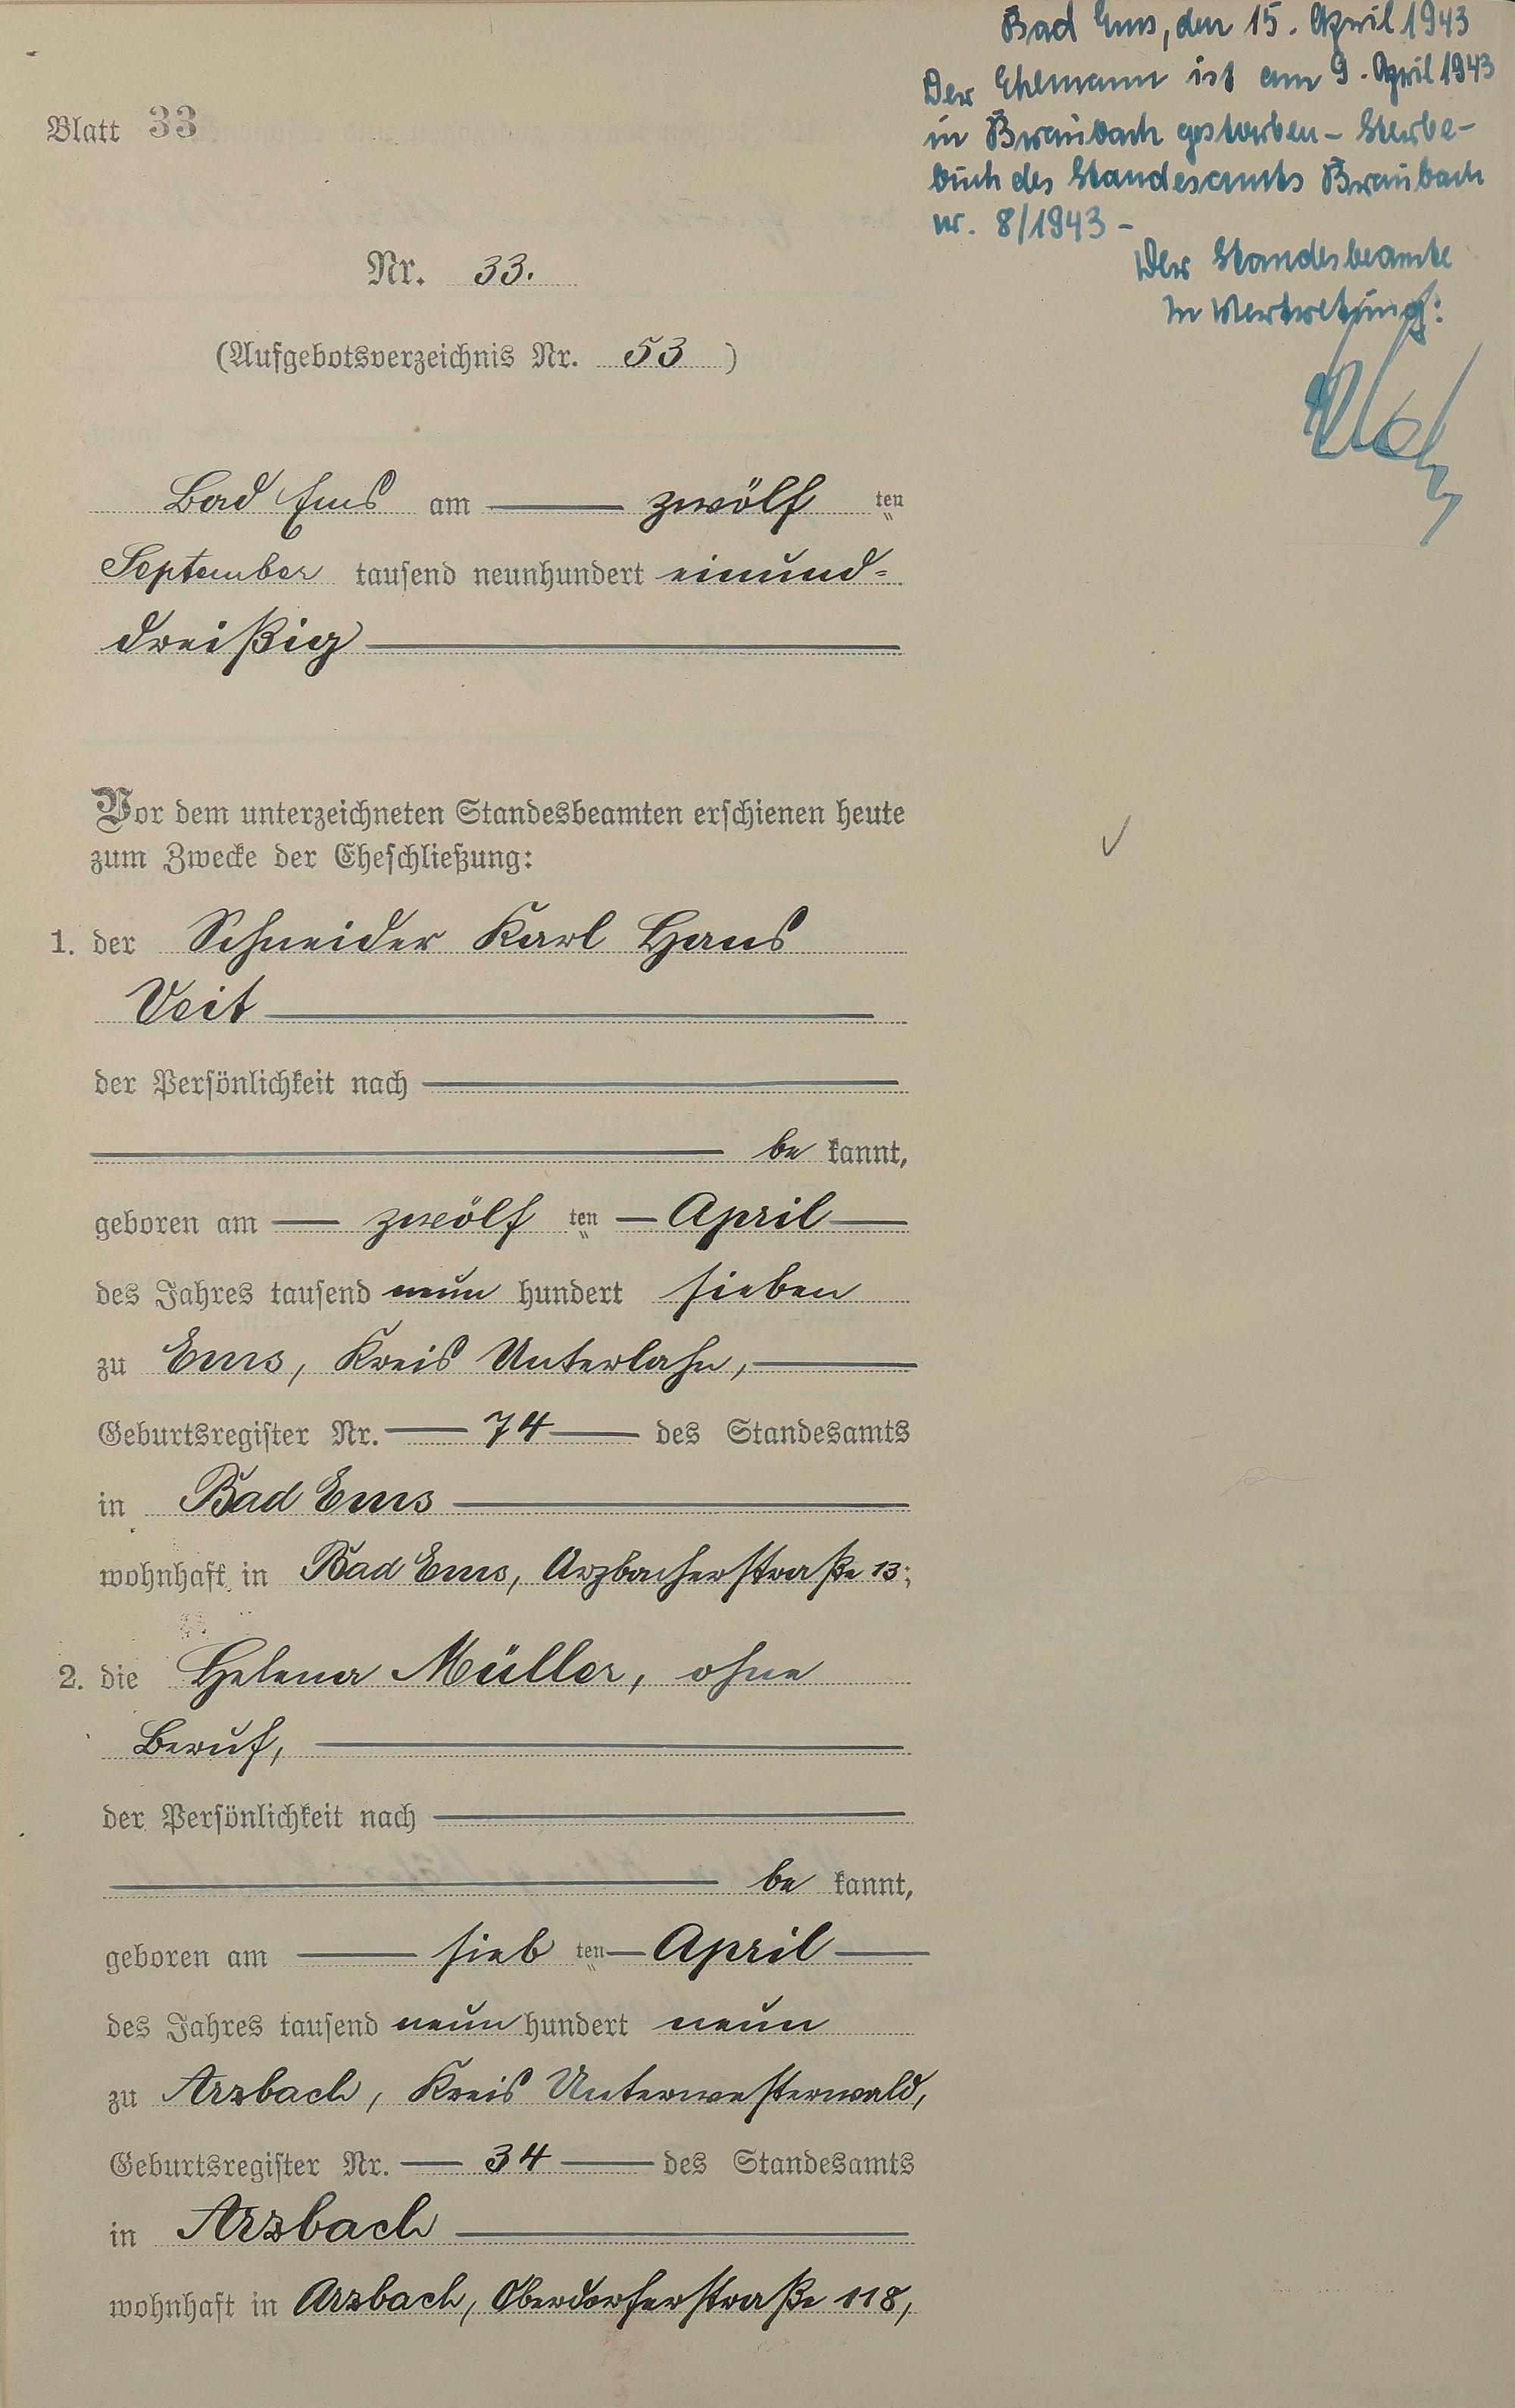 Bad Ems, den 15. April 1943
Der Ehemann ist am 9. April 1943
in Braubach gestorben – Sterbe-
buch des Standesamts Braubach
nr. 8/1943 –
Der Standesbeamte
In Vertretung:
Blatt 33
Nr. 33.
(Aufgebotsverzeichnis Nr. 53)
Bad Ems am zwölf ten
September tausend neunhundert einund-
dreißig
Vor dem unterzeichneten Standesbeamten erschienen heute
zum Zwecke der Eheschließung:
1. der Schneider Karl Hans
Veit
der Persönlichkeit nach
be kannt,
geboren am zwölf ten April
des Jahres tausend neun hundert sieben
zu Ems, Kreis Unterlahn,
Geburtsregister Nr. 74 des Standesamts
in Bad Ems
wohnhaft in Bad Ems, Arzbacherstraße 13;
2. die Helena Müller, ohne
Beruf,
der Persönlichkeit nach
be kannt,
geboren am sieb ten April
des Jahres tausend neun hundert neun
zu Arzbach, Kreis Unterwesterwald,
Geburtsregister Nr. 34 des Standesamts
in Arzbach
wohnhaft in Arzbach, Oberdorferstraße 118,